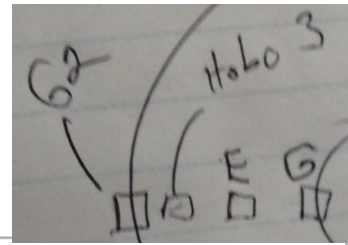 G2
Hobo 3
E G